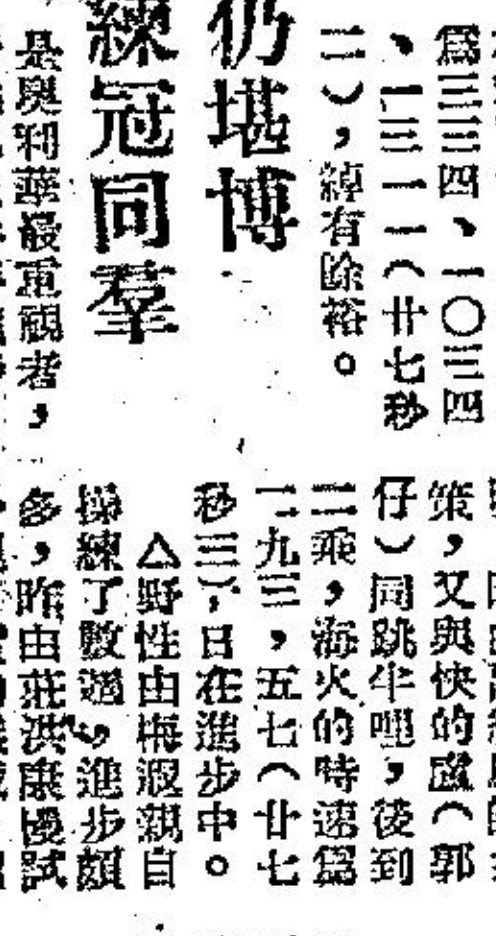 為三三四、一〇三四
、一三一一(廿七秒
二),綽有餘裕。
仍堪博
練冠同羣
是奧利華最重視者,
策,又與快的盧(郭
仔)同跳半哩,後到
二乘,海火的時速為
一九三,五七(廿七
秒三),日在進步中。
△野性由梅遐親自
操練了數週,進步頗
多,昨由莊洪康慢試